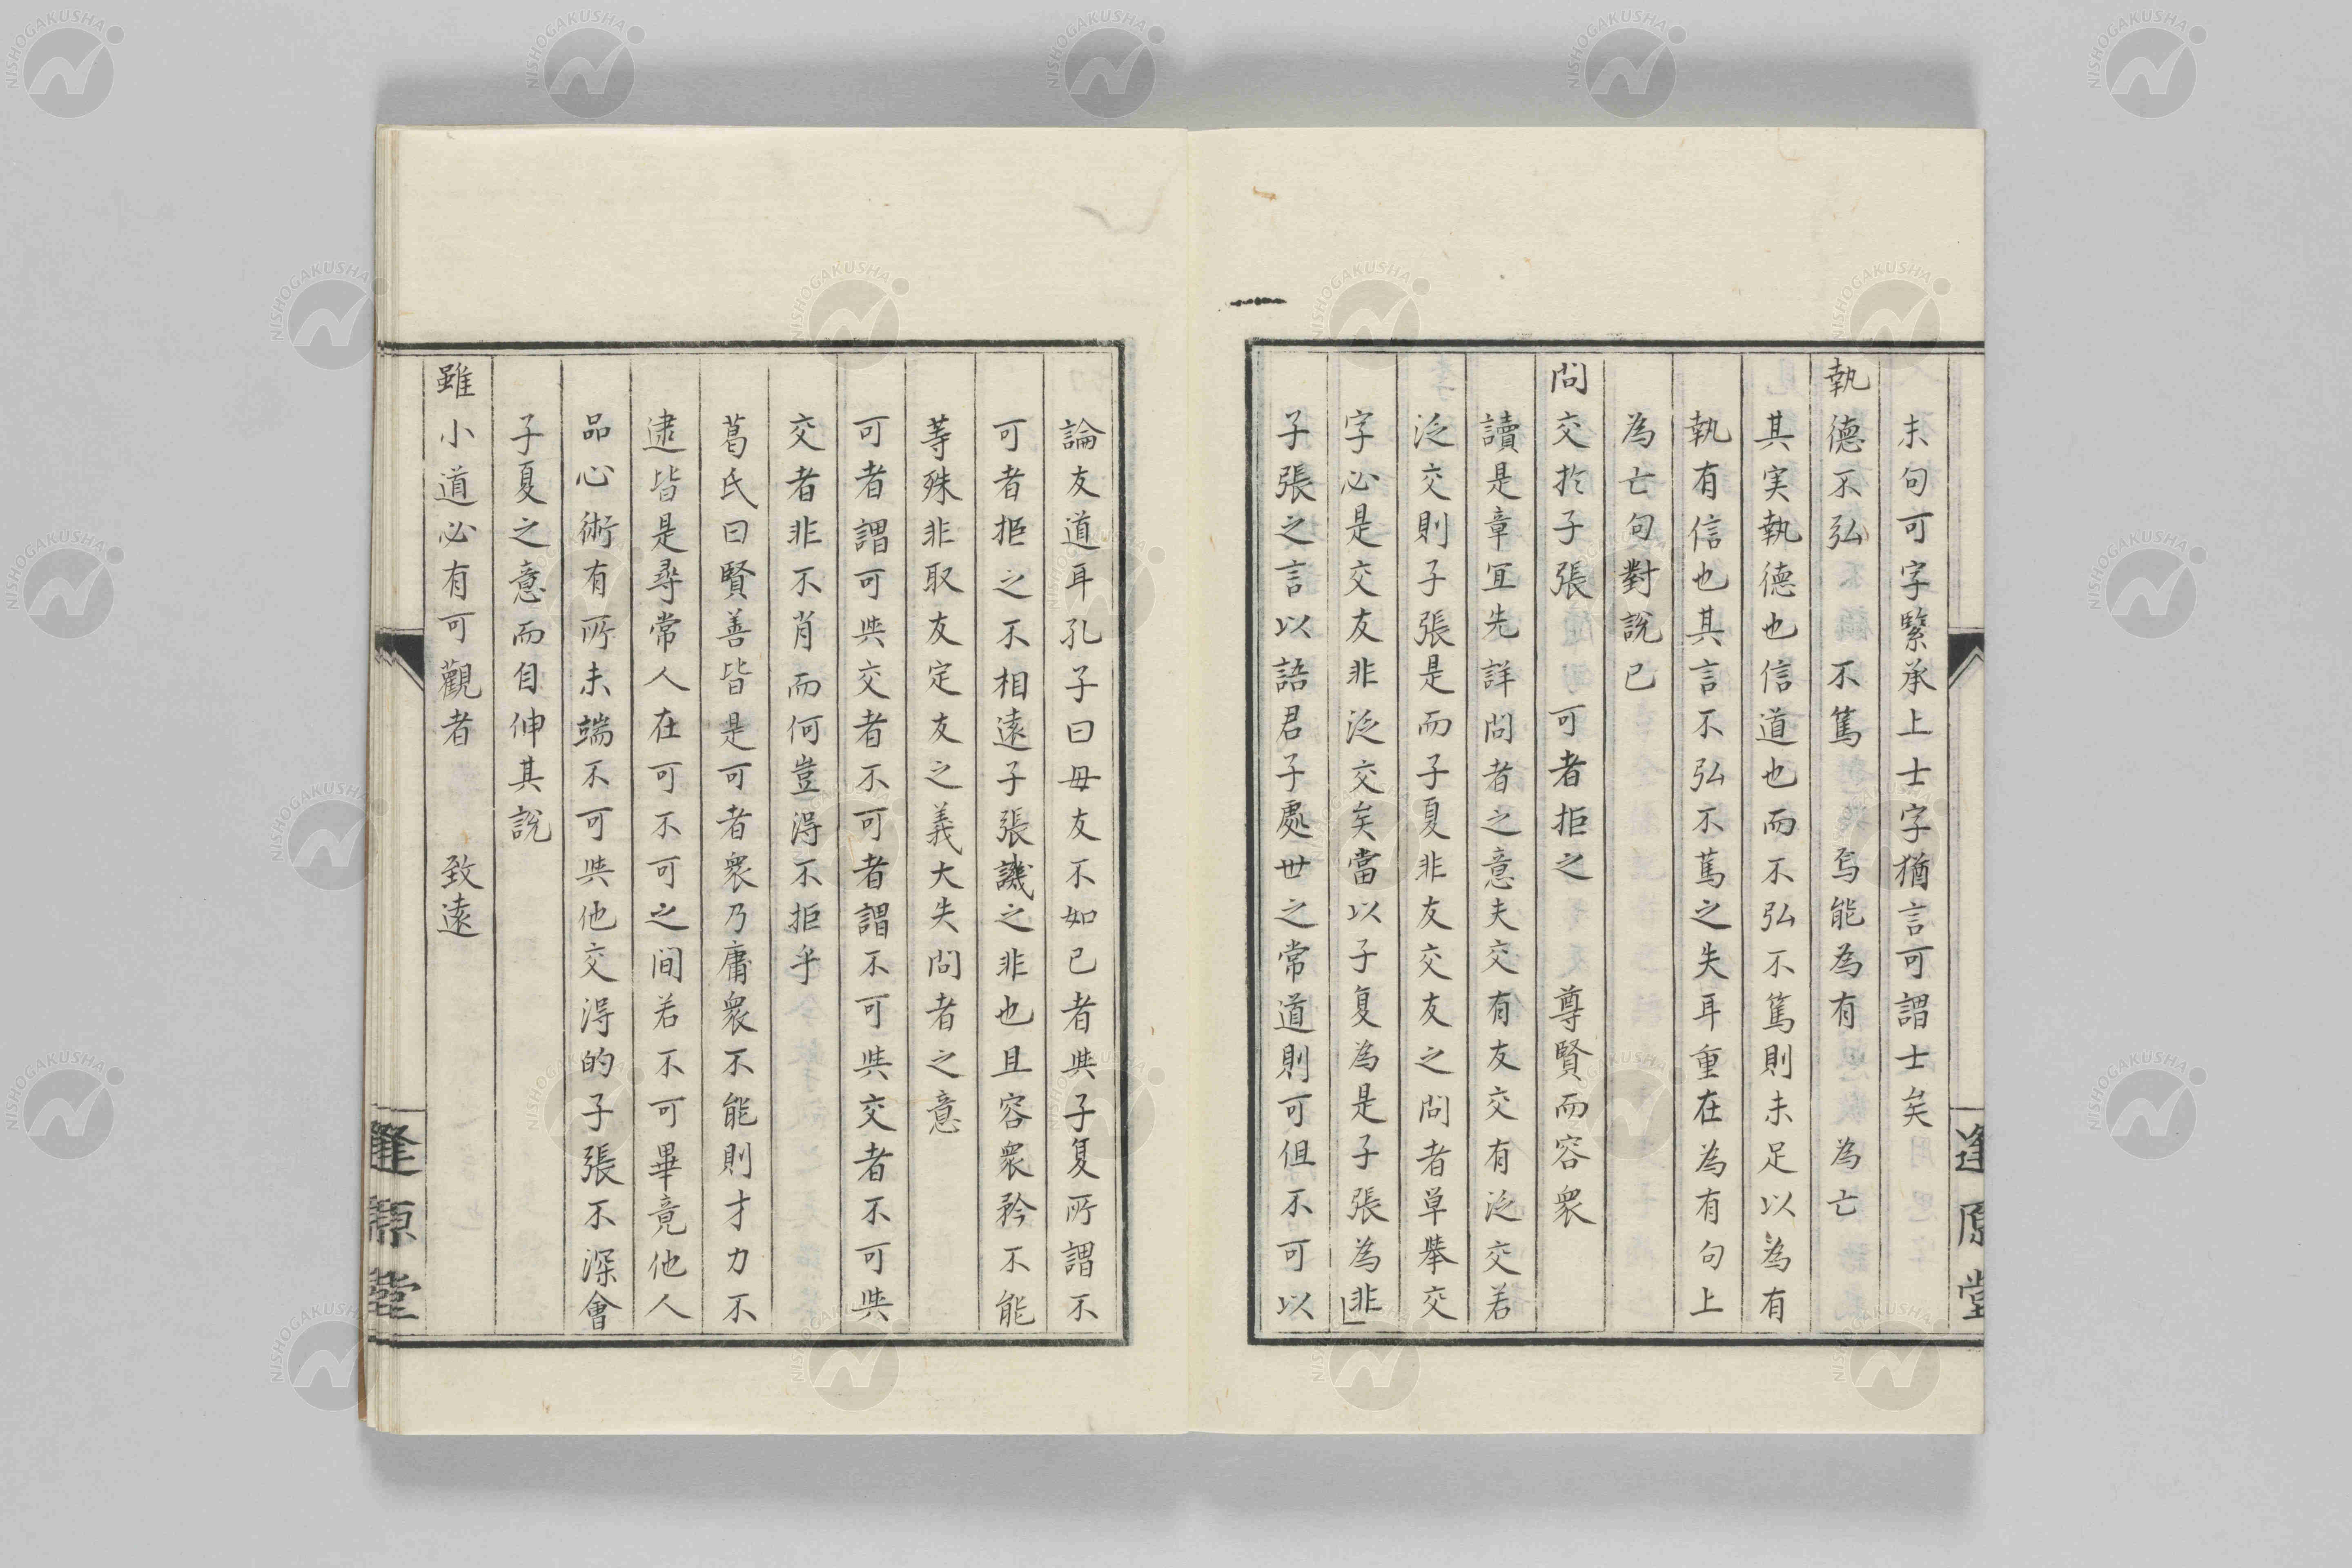 末句可字緊承上士字猶言可謂士矣
執德不弘　不篤　焉能為有　為亡
其実執德也信道也而不弘不篤則未足以為有
執有信也其言不弘不篤之失耳重在為有句上
為亡句對説已
問交於子張　可者拒之　尊賢而容衆
讀是章冝先詳問者之意夫交有友交有泛交若
泛交則子張是而子夏非友交友之問者単舉交
字必是交友非泛交矣當以子夏為是子張為非
子張之言以語君子處世之常道則可但不可以
論友道耳孔子曰毋友不如己者與子夏所謂不
可者拒之不相遠子張譏之非也且容衆矜不能
等殊非取友定友之義大失問者之意
可者謂可與交者不可者謂不可與交者不可與
交者非不肖而何豈得不拒乎
葛氏曰賢善皆是可者衆乃庸衆不能則才力不
逮皆是尋常人在可不可之间若不可畢竟他人
品心術有所未端不可與他交得的子張不深會
子夏之意而自伸其說
雖小道必有可觀者　致遠
逢原堂